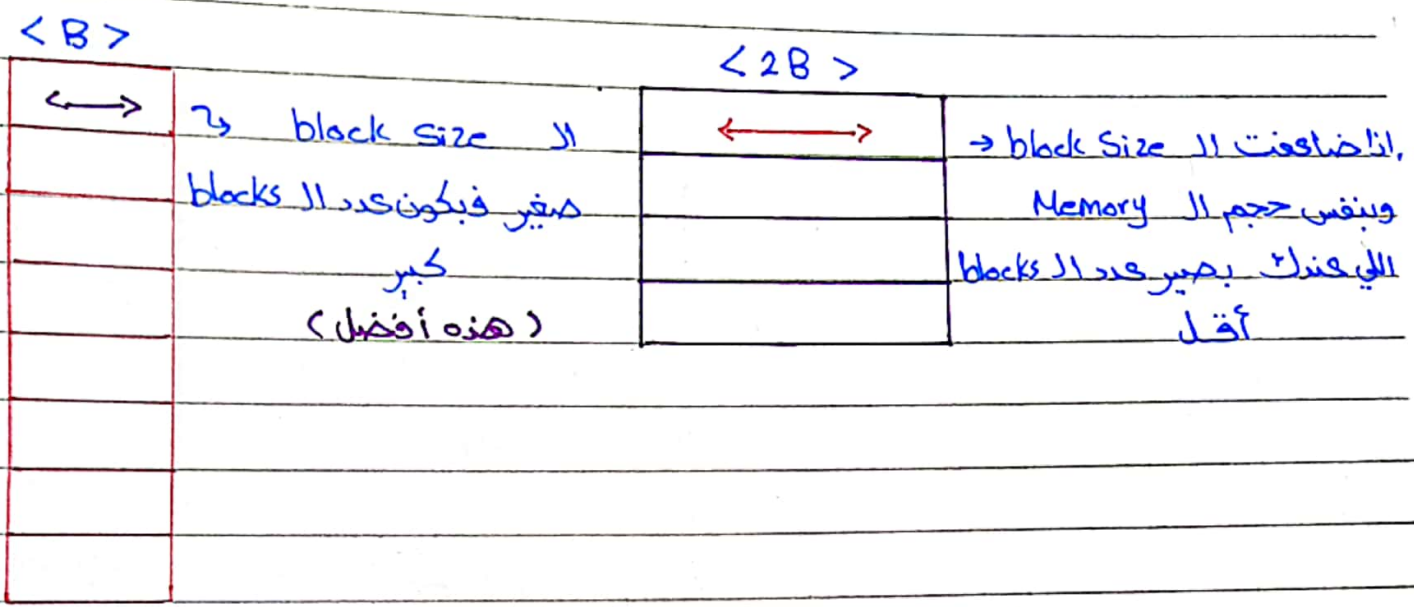 < B >
ال block size
صغير فبكون عدد ال blocks
كبير
(هذه أفضل)
< 2B >
إذا ضاعفت ال block size →
وبنفس حجم ال Memory
اللي عندك بصير عدد ال blocks
أقل